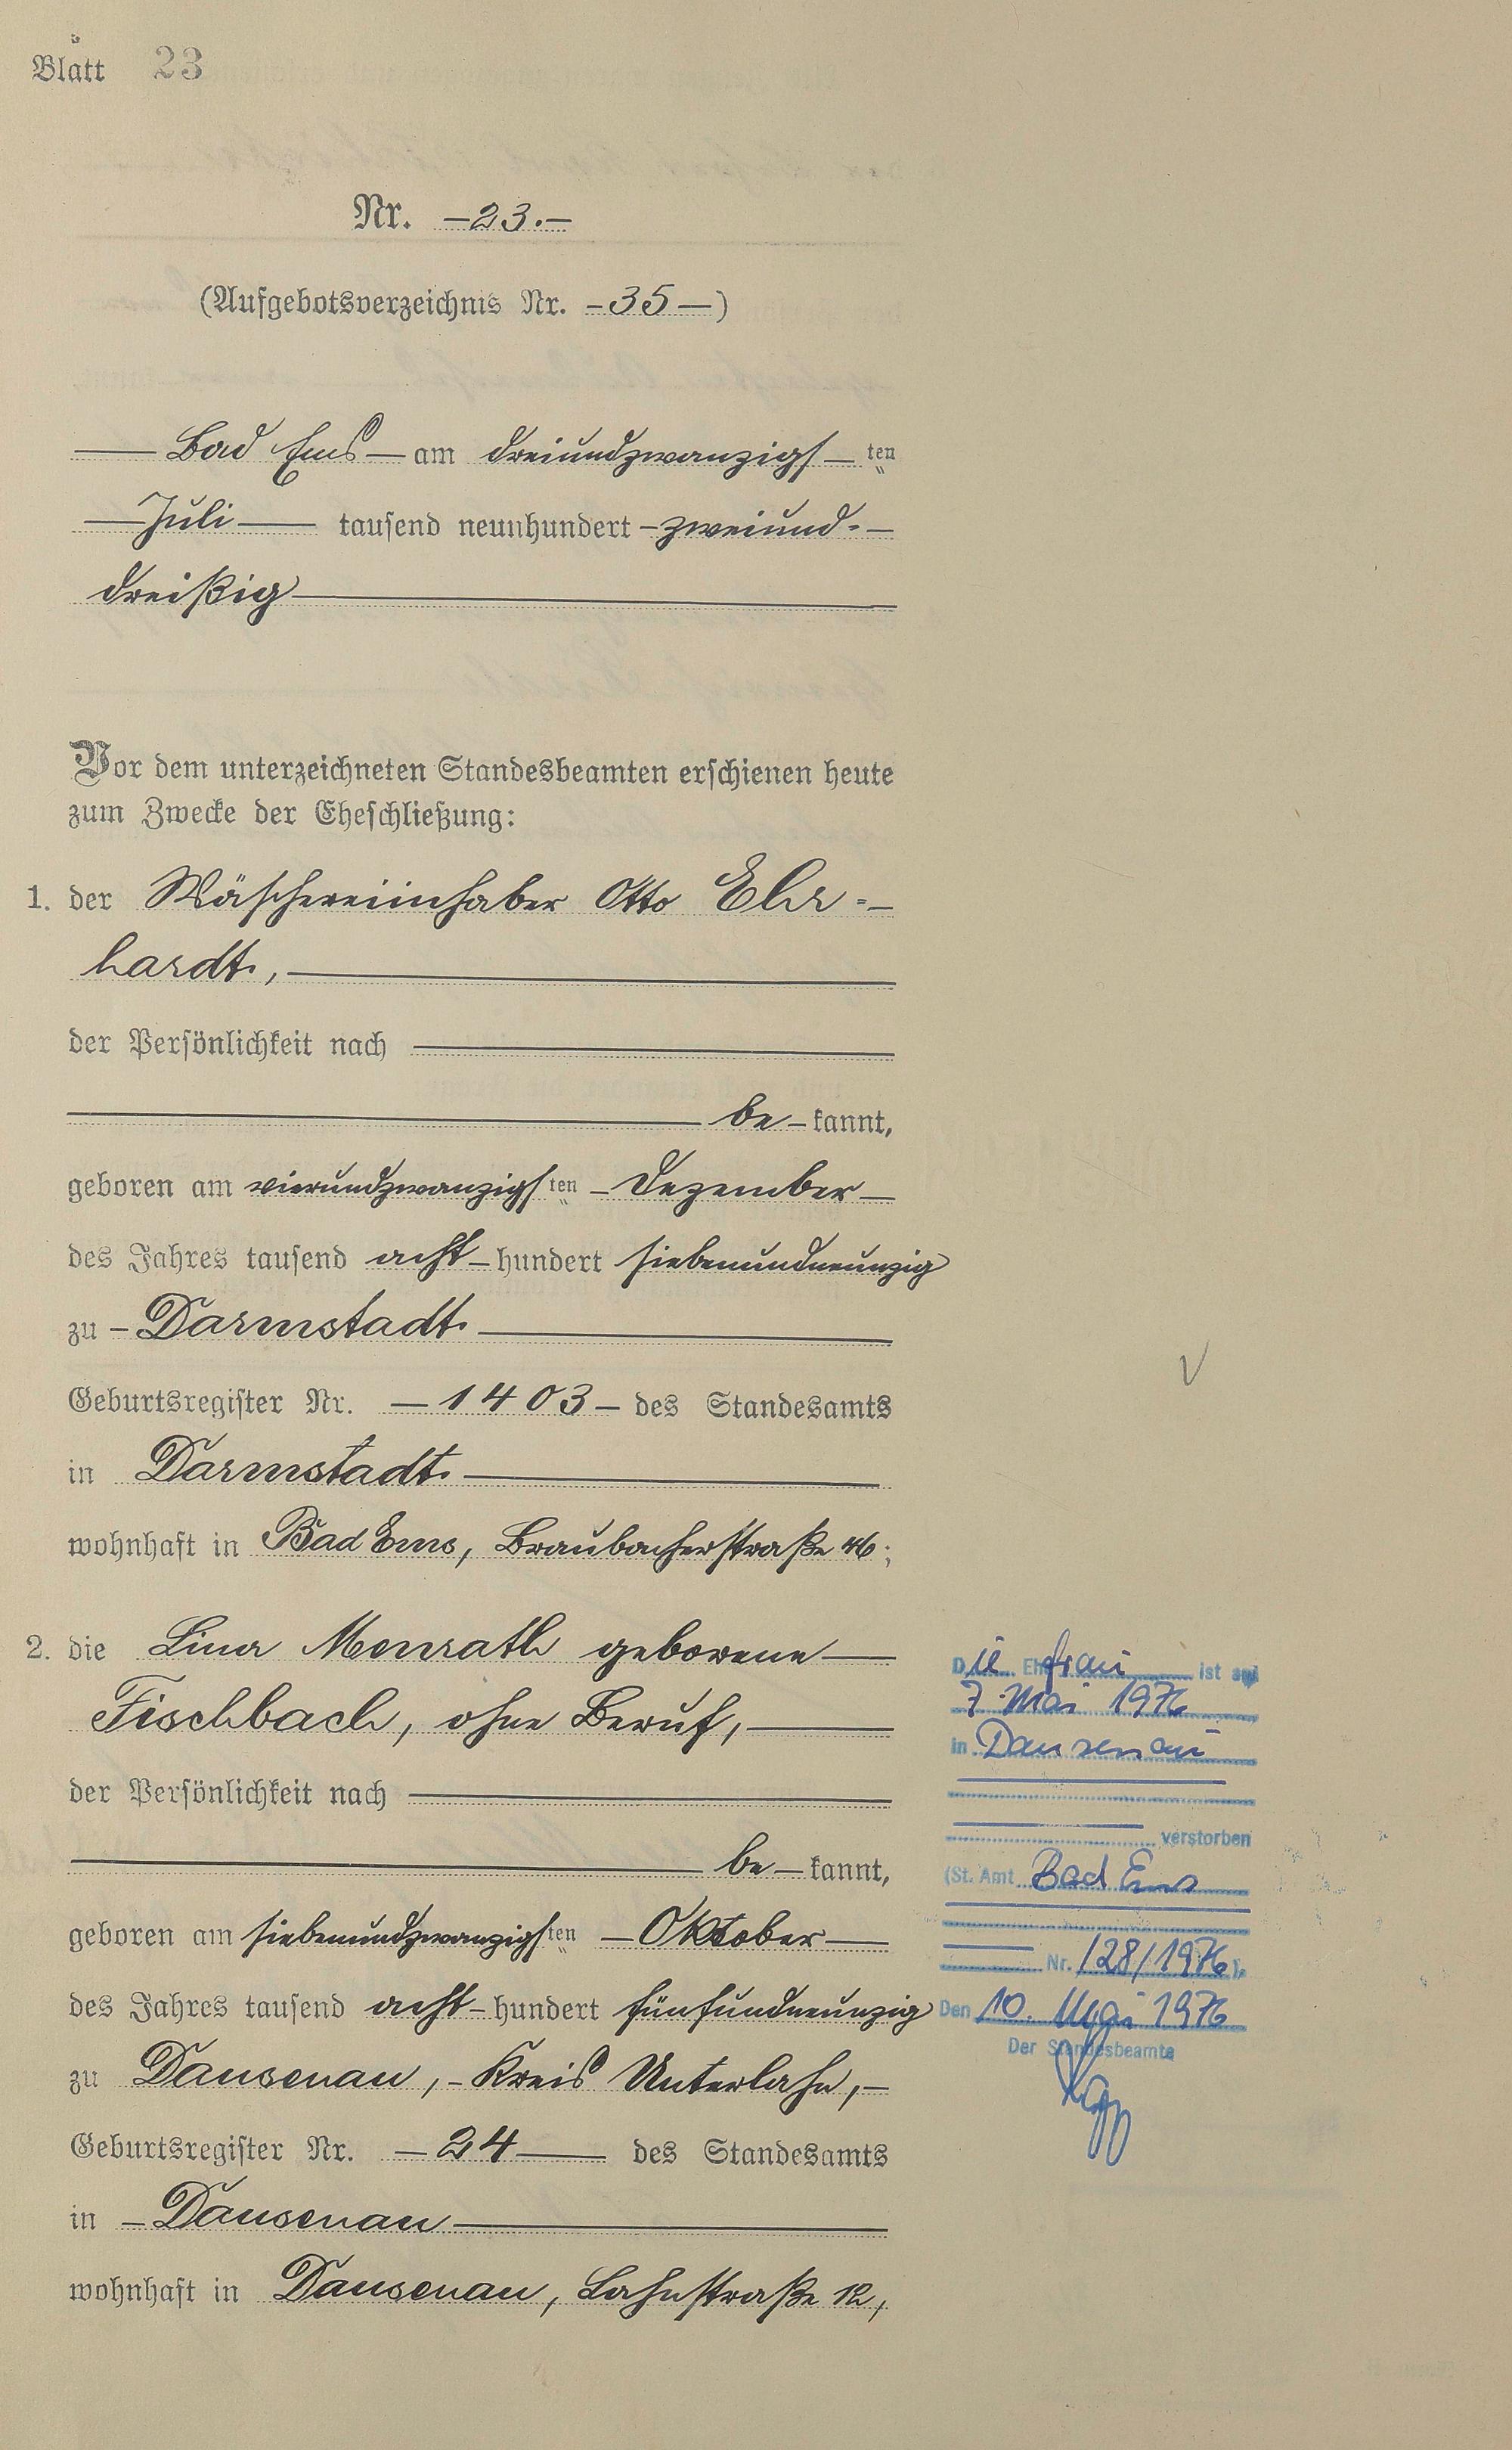 Blatt 23
Nr. -23.-
(Aufgebotsverzeichnis Nr. -35-)
Bad Ems - am dreiundzwanzigs-ten
Juli tausend neunhundert - zweiund-
dreißig
Vor dem unterzeichneten Standesbeamten erschienen heute
zum Zwecke der Eheschließung:
1. der Wäschereiinhaber Otto Ehr-
hardt,
der Persönlichkeit nach
be-kannt,
geboren am vierundzwanzigsten - Dezember
des Jahres tausend acht-hundert siebenundneunzig
zu - Darmstadt
Geburtsregister Nr. - 1403 - des Standesamts
in Darmstadt
wohnhaft in Bad Ems, Braubacherstraße 46;
2. die Lina Menrath geborene
Fischbach, ohne Beruf,
der Persönlichkeit nach
be-kannt,
geboren am siebenundzwanzigsten - Oktober
des Jahres tausend acht-hundert fünfundneunzig
zu Dausenau, - Kreis Unterlahn, -
Geburtsregister Nr. - 24 - des Standesamts
in - Dausenau
wohnhaft in Dausenau, Lahnstraße 12,
Die Ehefrau ist am
7. Mai 1976
in Dausenau
verstorben
(St. Amt Bad Ems
Nr. 128/1976).
Den 10. Mai 1976
Der Standesbeamte